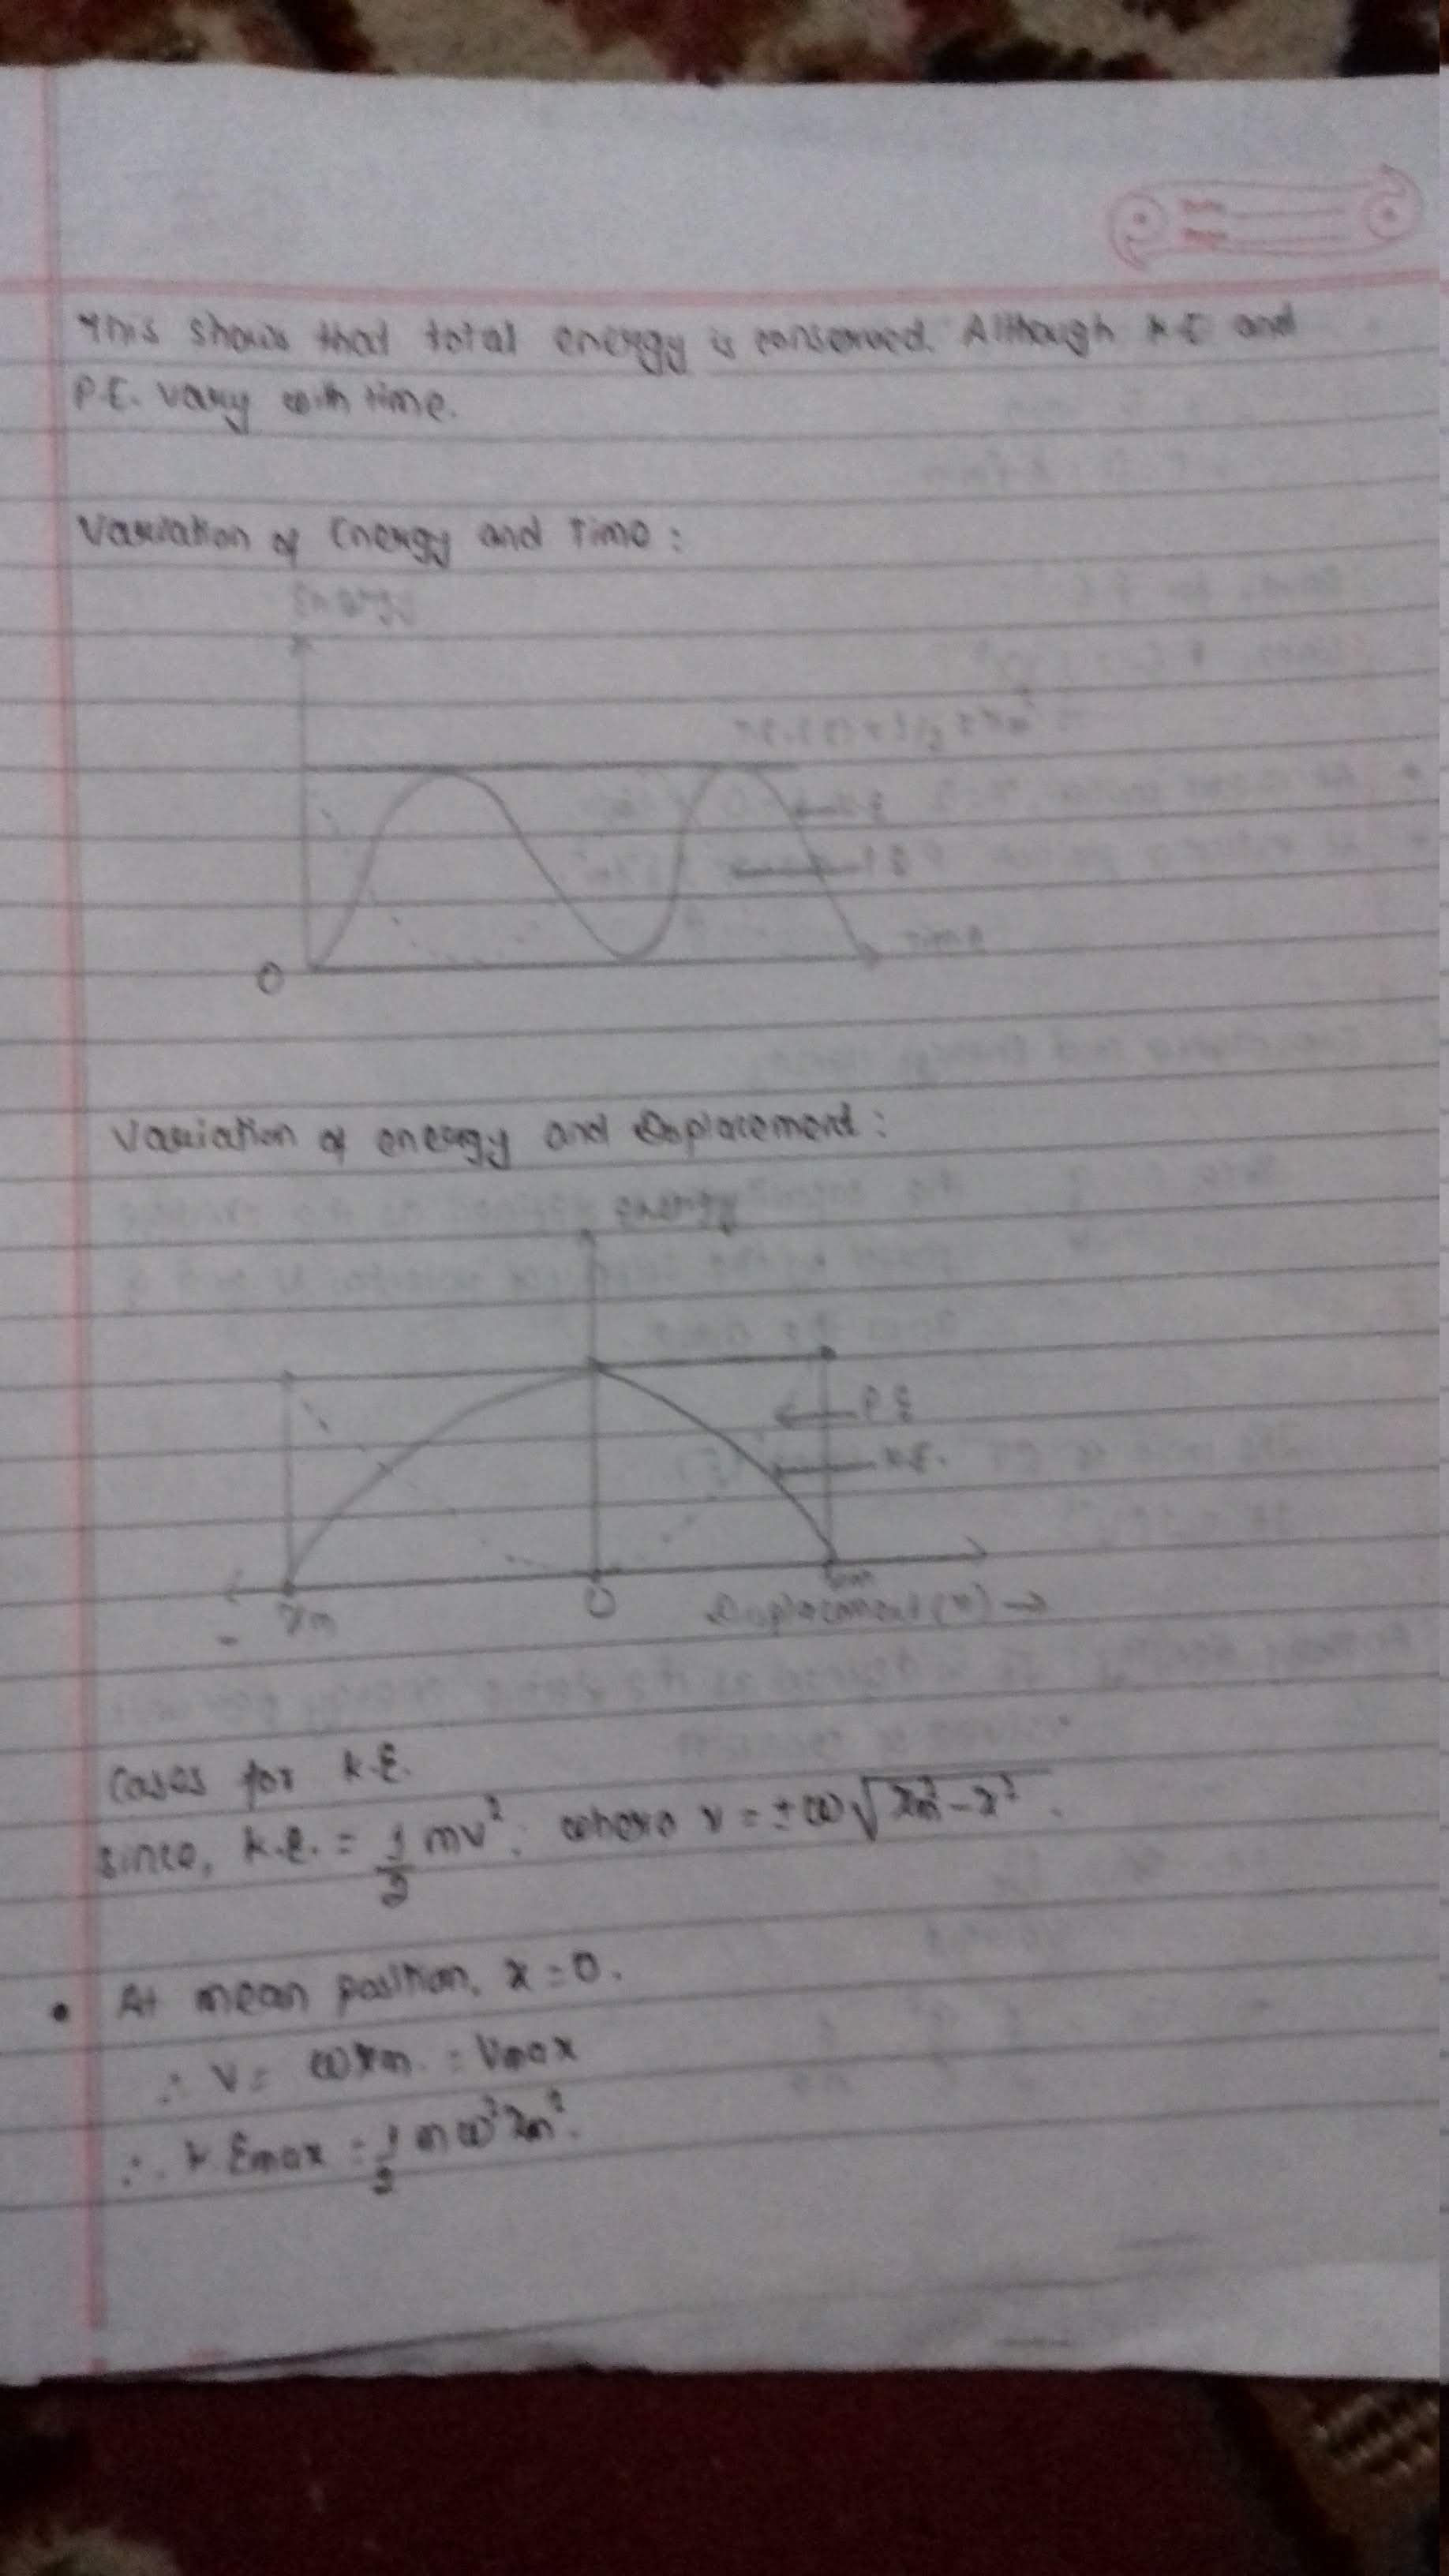 This shows that total energy is conserved. Although K.E and
P.E. vary with time.
Variation of Energy and Time :
Energy
Time
O
Variation of energy and Displacement :
energy
P.E
K.E.
- xm
O
xm
Displacement (x) →
Cases for K.E.
since, K.E. = 1/2 mv², where v = ±ω√xm²-x² .
• At mean position, x = 0.
∴ v = ωxm = Vmax
∴ K Emax = 1/2 mω²xm².